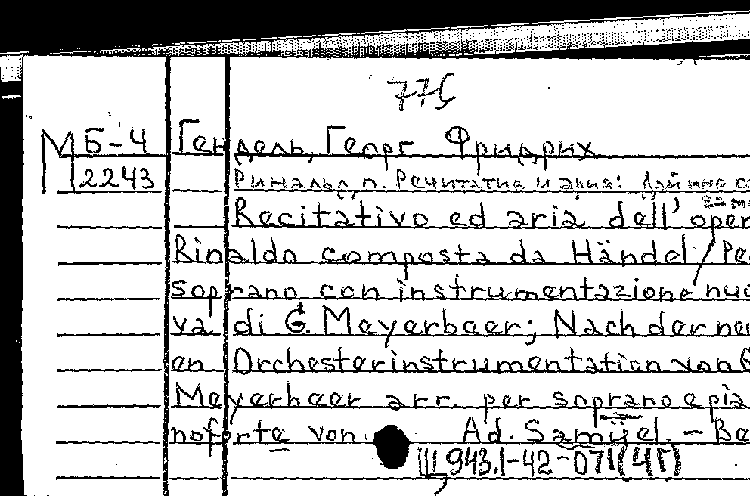 775
М Б-4 Гендель, Георг Фридрих
2243 Ринальдо. Речитатив и ария: Дай мне
Recitativo ed aria dell'oper
Rinaldo composta da Händel / Pe
soprano con instrumentazione nuo
va di G. Meyerbeer; Nach der neu
en Orchesterinstrumentation von G
Meyerbeer arr. per soprano e pia
noforte von Ad. Samuel. - Be
III, 943.1-42-071(4Г)